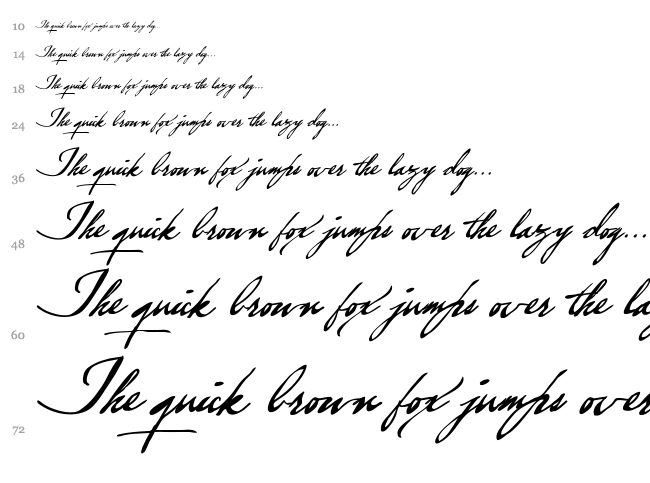 10 The quick brown fox jumps over the lazy dog...
14 The quick brown fox jumps over the lazy dog...
18 The quick brown fox jumps over the lazy dog...
24 The quick brown fox jumps over the lazy dog...
36 The quick brown fox jumps over the lazy dog...
48 The quick brown fox jumps over the lazy dog...
60 The quick brown fox jumps over the la
72 The quick brown fox jumps over